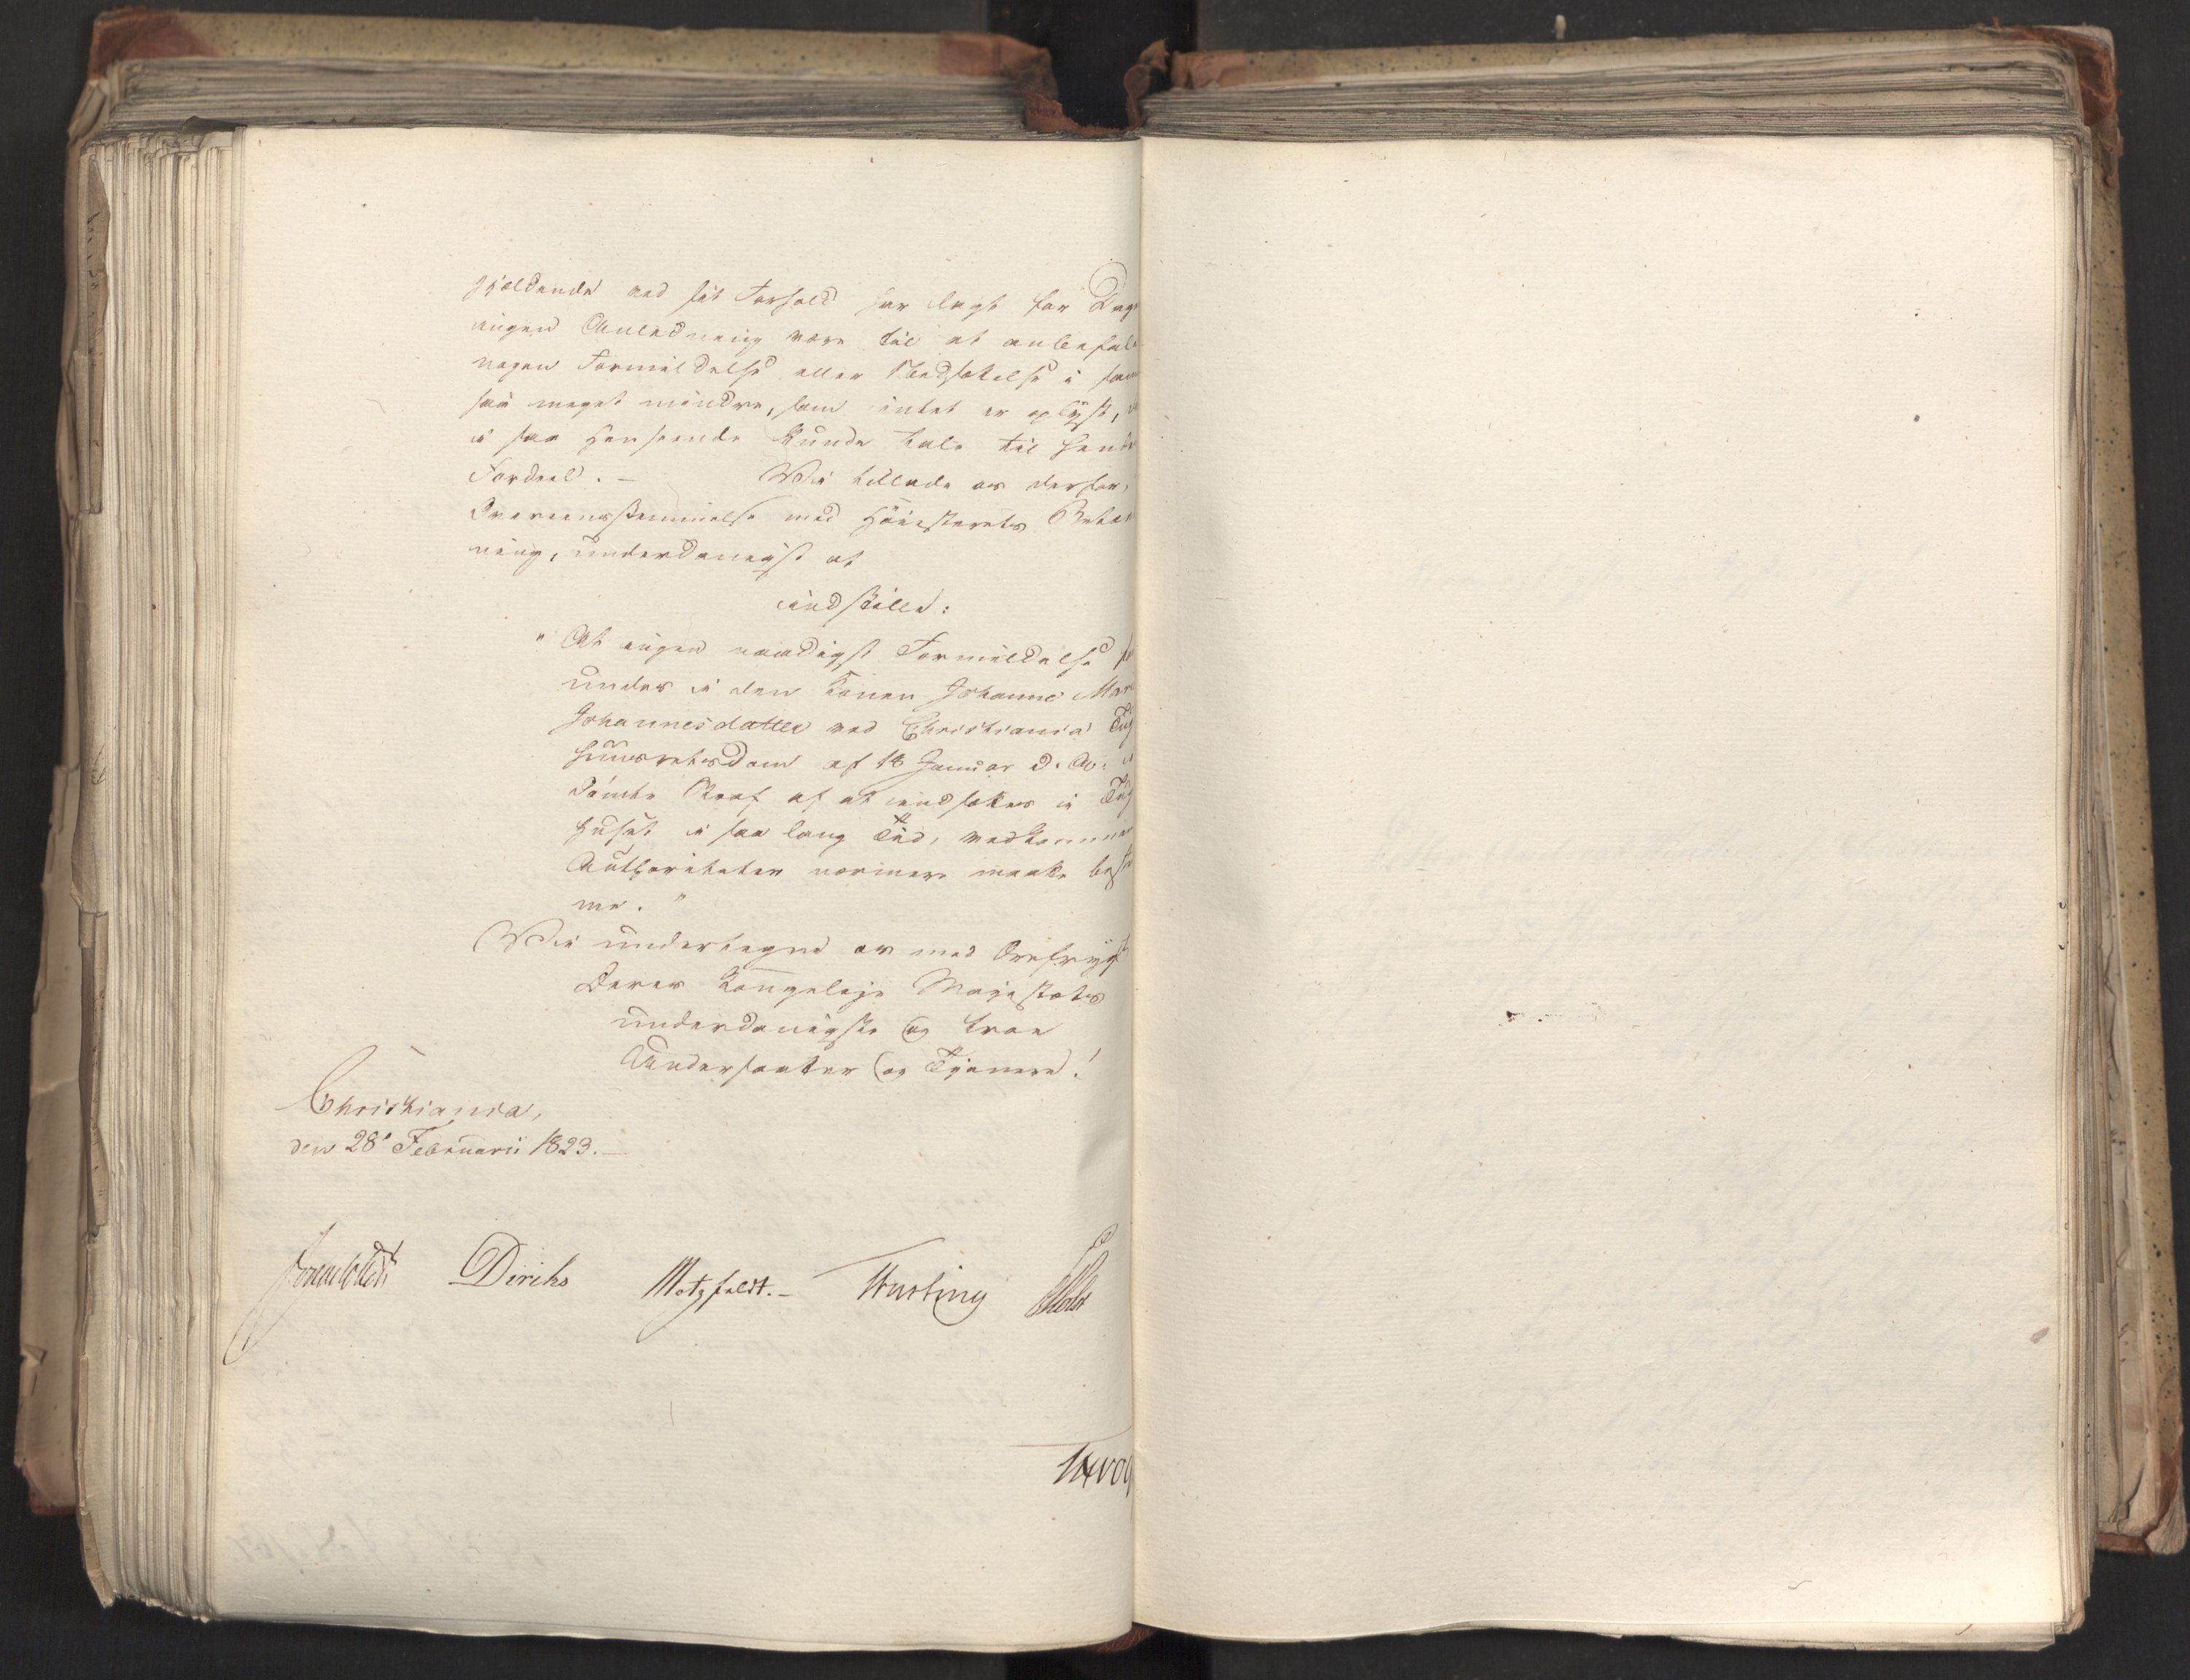 gjældende ved sit Forhold har lagt for Dag
ingen Anledning være til at anbefal
nogen Formildelse eller Nedsættelse i
saa meget mindre, som intet er oplyst,
i saa Henseende kunde tale til hend
Fordeel. – Vi tillade os derfor,
Overeensstemmelse med Høiesterets Betæn
ning, underdanigst at
indstille:
" At ingen naadigst Formildelse
undes i den Konen Johanne Mar
Johannesdatter ved Christiania Tug
huusretsdom af 18 Januar d. A. i
dømte Straf af at indsættes i Tug
huset i saa lang Tid, vedkomme
Authoriteter nærmere maatte beste
me. "
Vi undertegne os med Ærefrygt
Deres Kongelige Majestæts
underdanigste og troe
Undersaatter og Tjenere!
Christiania,
den 28de Februarii 1823. –
Sommerhielm Diriks Motzfeldt. – Fasting Holst